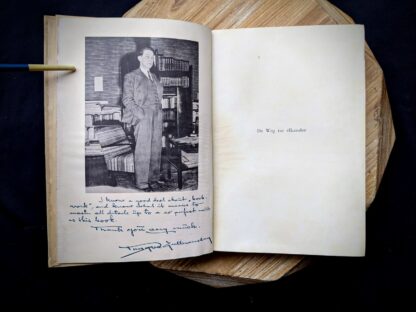 I know a good deal about "book-
work", and know what it means to
match all details up to a so perfect unit
as this book.
Thank you very much.
De Weg tot elkander